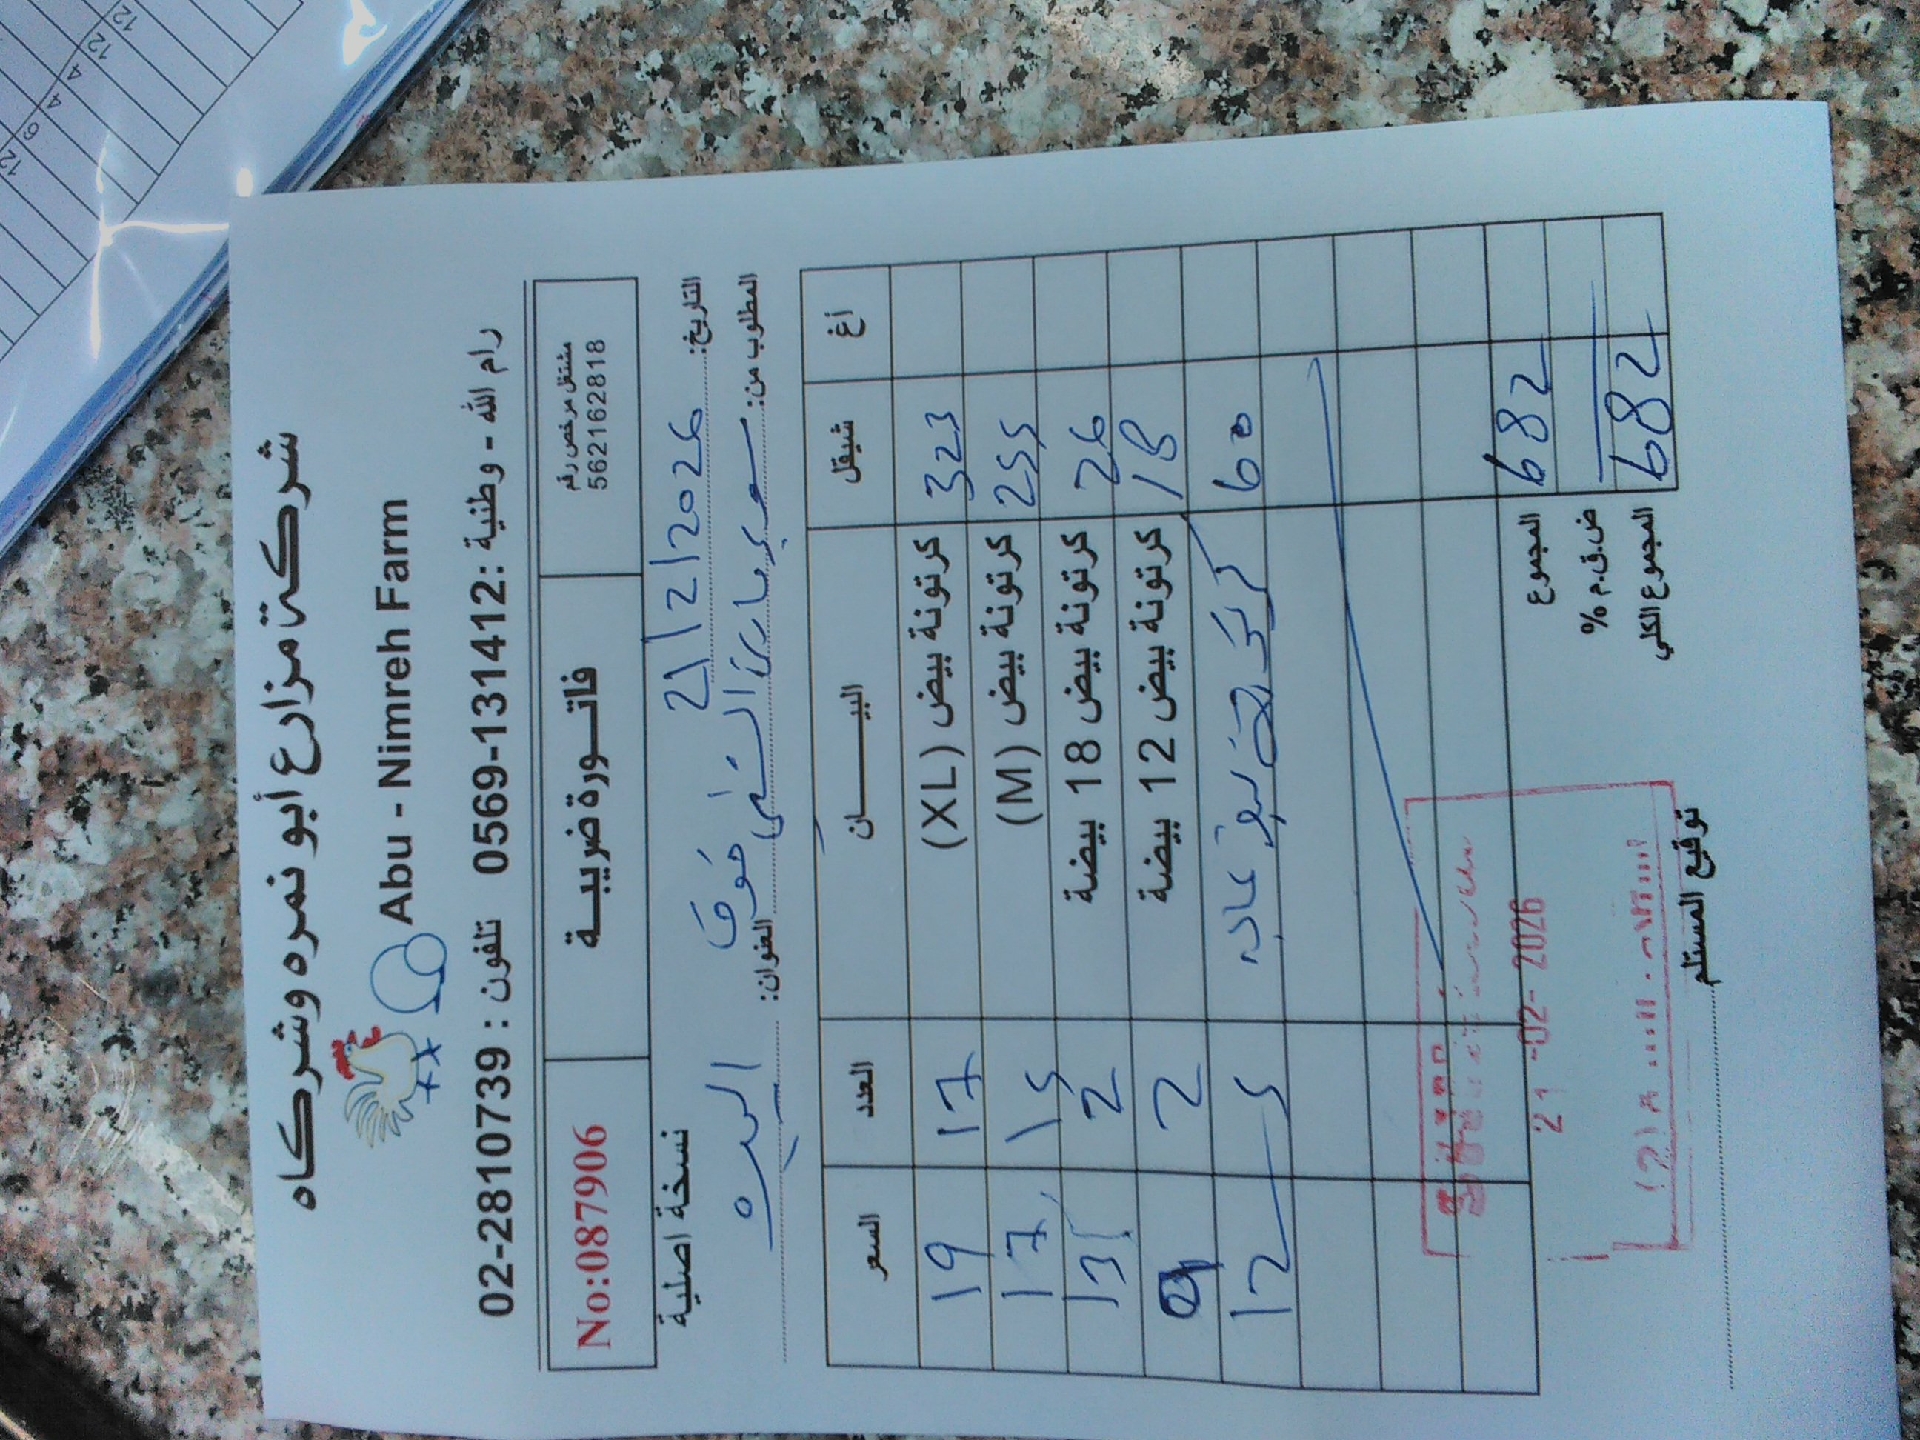 شركة مزارع أبو نمره وشركاه
Abu - Nimreh Farm
رام الله - وطنية : 0569-131412 تلفون : 02-2810739
مشتغل مرخص رقم
562162818
فاتــورة ضريبــة
No:087906
التاريخ: 21/2/2026
نسخة اصلية
المطلوب من:
العنوان: البيره
أغ شيقل البيـــــان العدد السعر
323 كرتونة بيض (XL) 17 19
255 كرتونة بيض (M) 15 17
26 كرتونة بيض 18 بيضة 2 13
18 كرتونة بيض 12 بيضة 2 9
60 5 12
المجموع 682
ض.ق.م %
المجموع الكلي 682
21 -02- 2026
توقيع المستلم
12
12
4
4
6
12